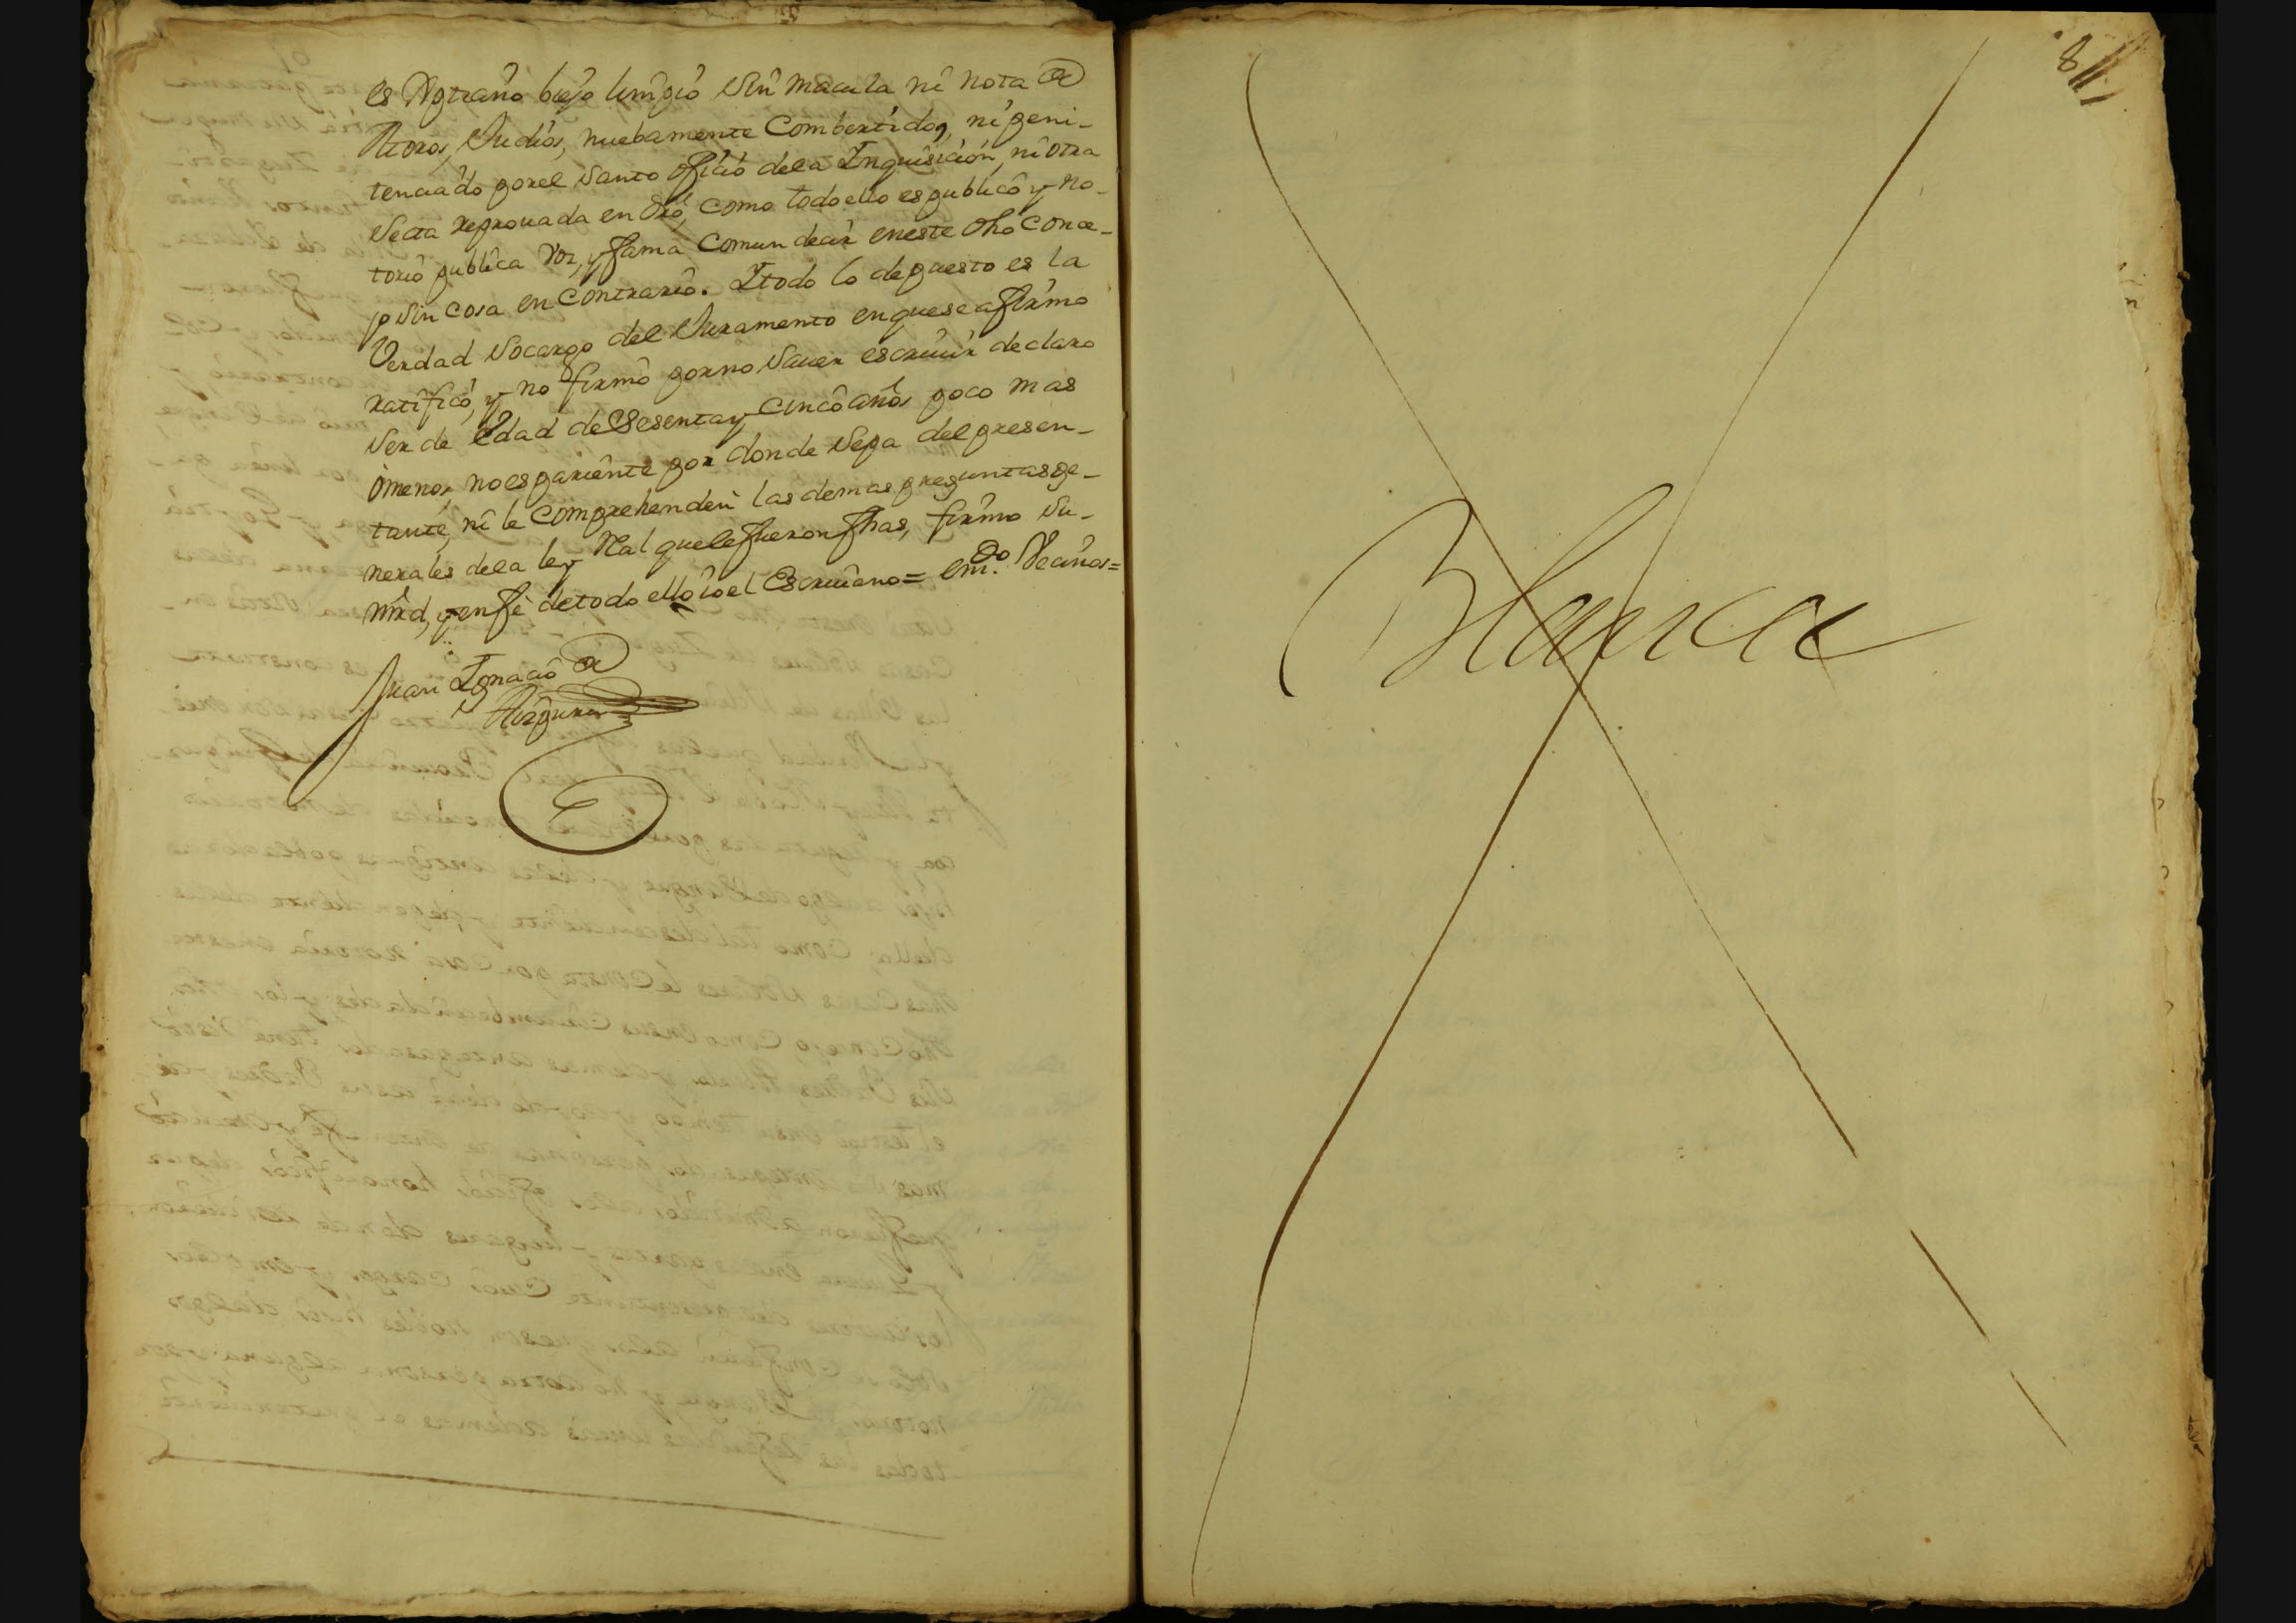 es Xptiano biejo limpio sin macula ni nota de
Moros, Judios, nuebamente Combertidos, ni peni-
tenciado por el Santo oficio dela Inquisición, ni otra
Secta reprouada en dro, como todo ello es publico y no-
torio publica voz, y fama Comun decir en este dho Conce-
jo sin cosa en Contrario. I todo lo depuesto es la
Verdad socargo del Juramento en que se afirmo
ratificó, y no firmó por no sauer escriuir declaro
ser de Edad de Sesenta y Cinco años poco mas
ó menos, no es pariente por donde sepa del presen-
tante, ni le Comprehenden las demas preguntas ge-
nerales dela ley Real que le fueron fhas, firmo su
mrd, y en fe de todo ello io el Escriuano = em.do Vecinos =
Juan Ignacio de
8
Blanca